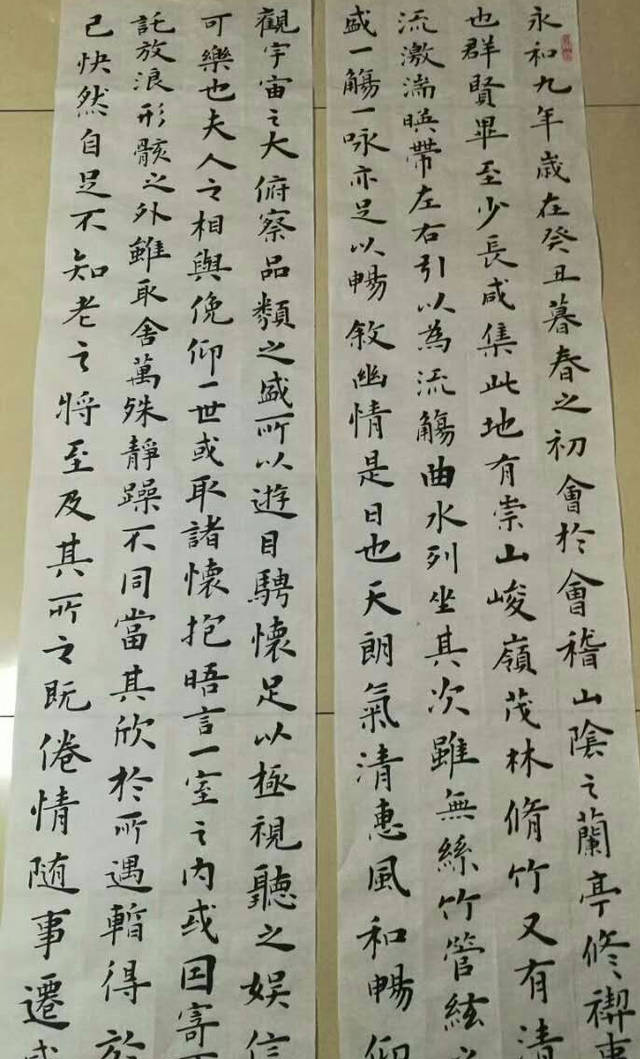 永和九年歲在癸丑暮春之初會於會稽山陰之蘭亭修禊事
也群賢畢至少長咸集此地有崇山峻嶺茂林脩竹又有清
流激湍暎帶左右引以為流觴曲水列坐其次雖無絲竹管絃之
盛一觴一咏亦足以暢敘幽情是日也天朗氣清惠風和暢仰
觀宇宙之大俯察品類之盛所以遊目騁懷足以極視聽之娛信
可樂也夫人之相與俛仰一世或取諸懷抱晤言一室之內或因寄所
託放浪形骸之外雖取舍萬殊靜躁不同當其欣於所遇暫得於
己快然自足不知老之將至及其所之既倦情隨事遷感